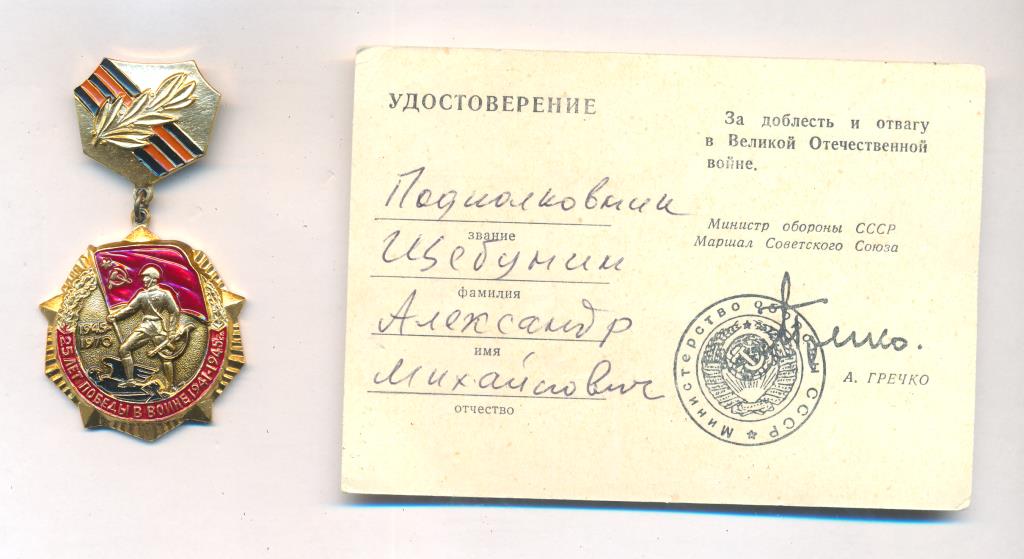 1945-
1970
25 ЛЕТ ПОБЕДЫ В ВОЙНЕ 1941-1945
УДОСТОВЕРЕНИЕ
Подполковник
звание
Щебунин
фамилия
Александр
имя
Михайлович
отчество
За доблесть и отвагу
в Великой Отечественной
войне.
Министр обороны СССР
Маршал Советского Союза
А. ГРЕЧКО
Министерство обороны СССР